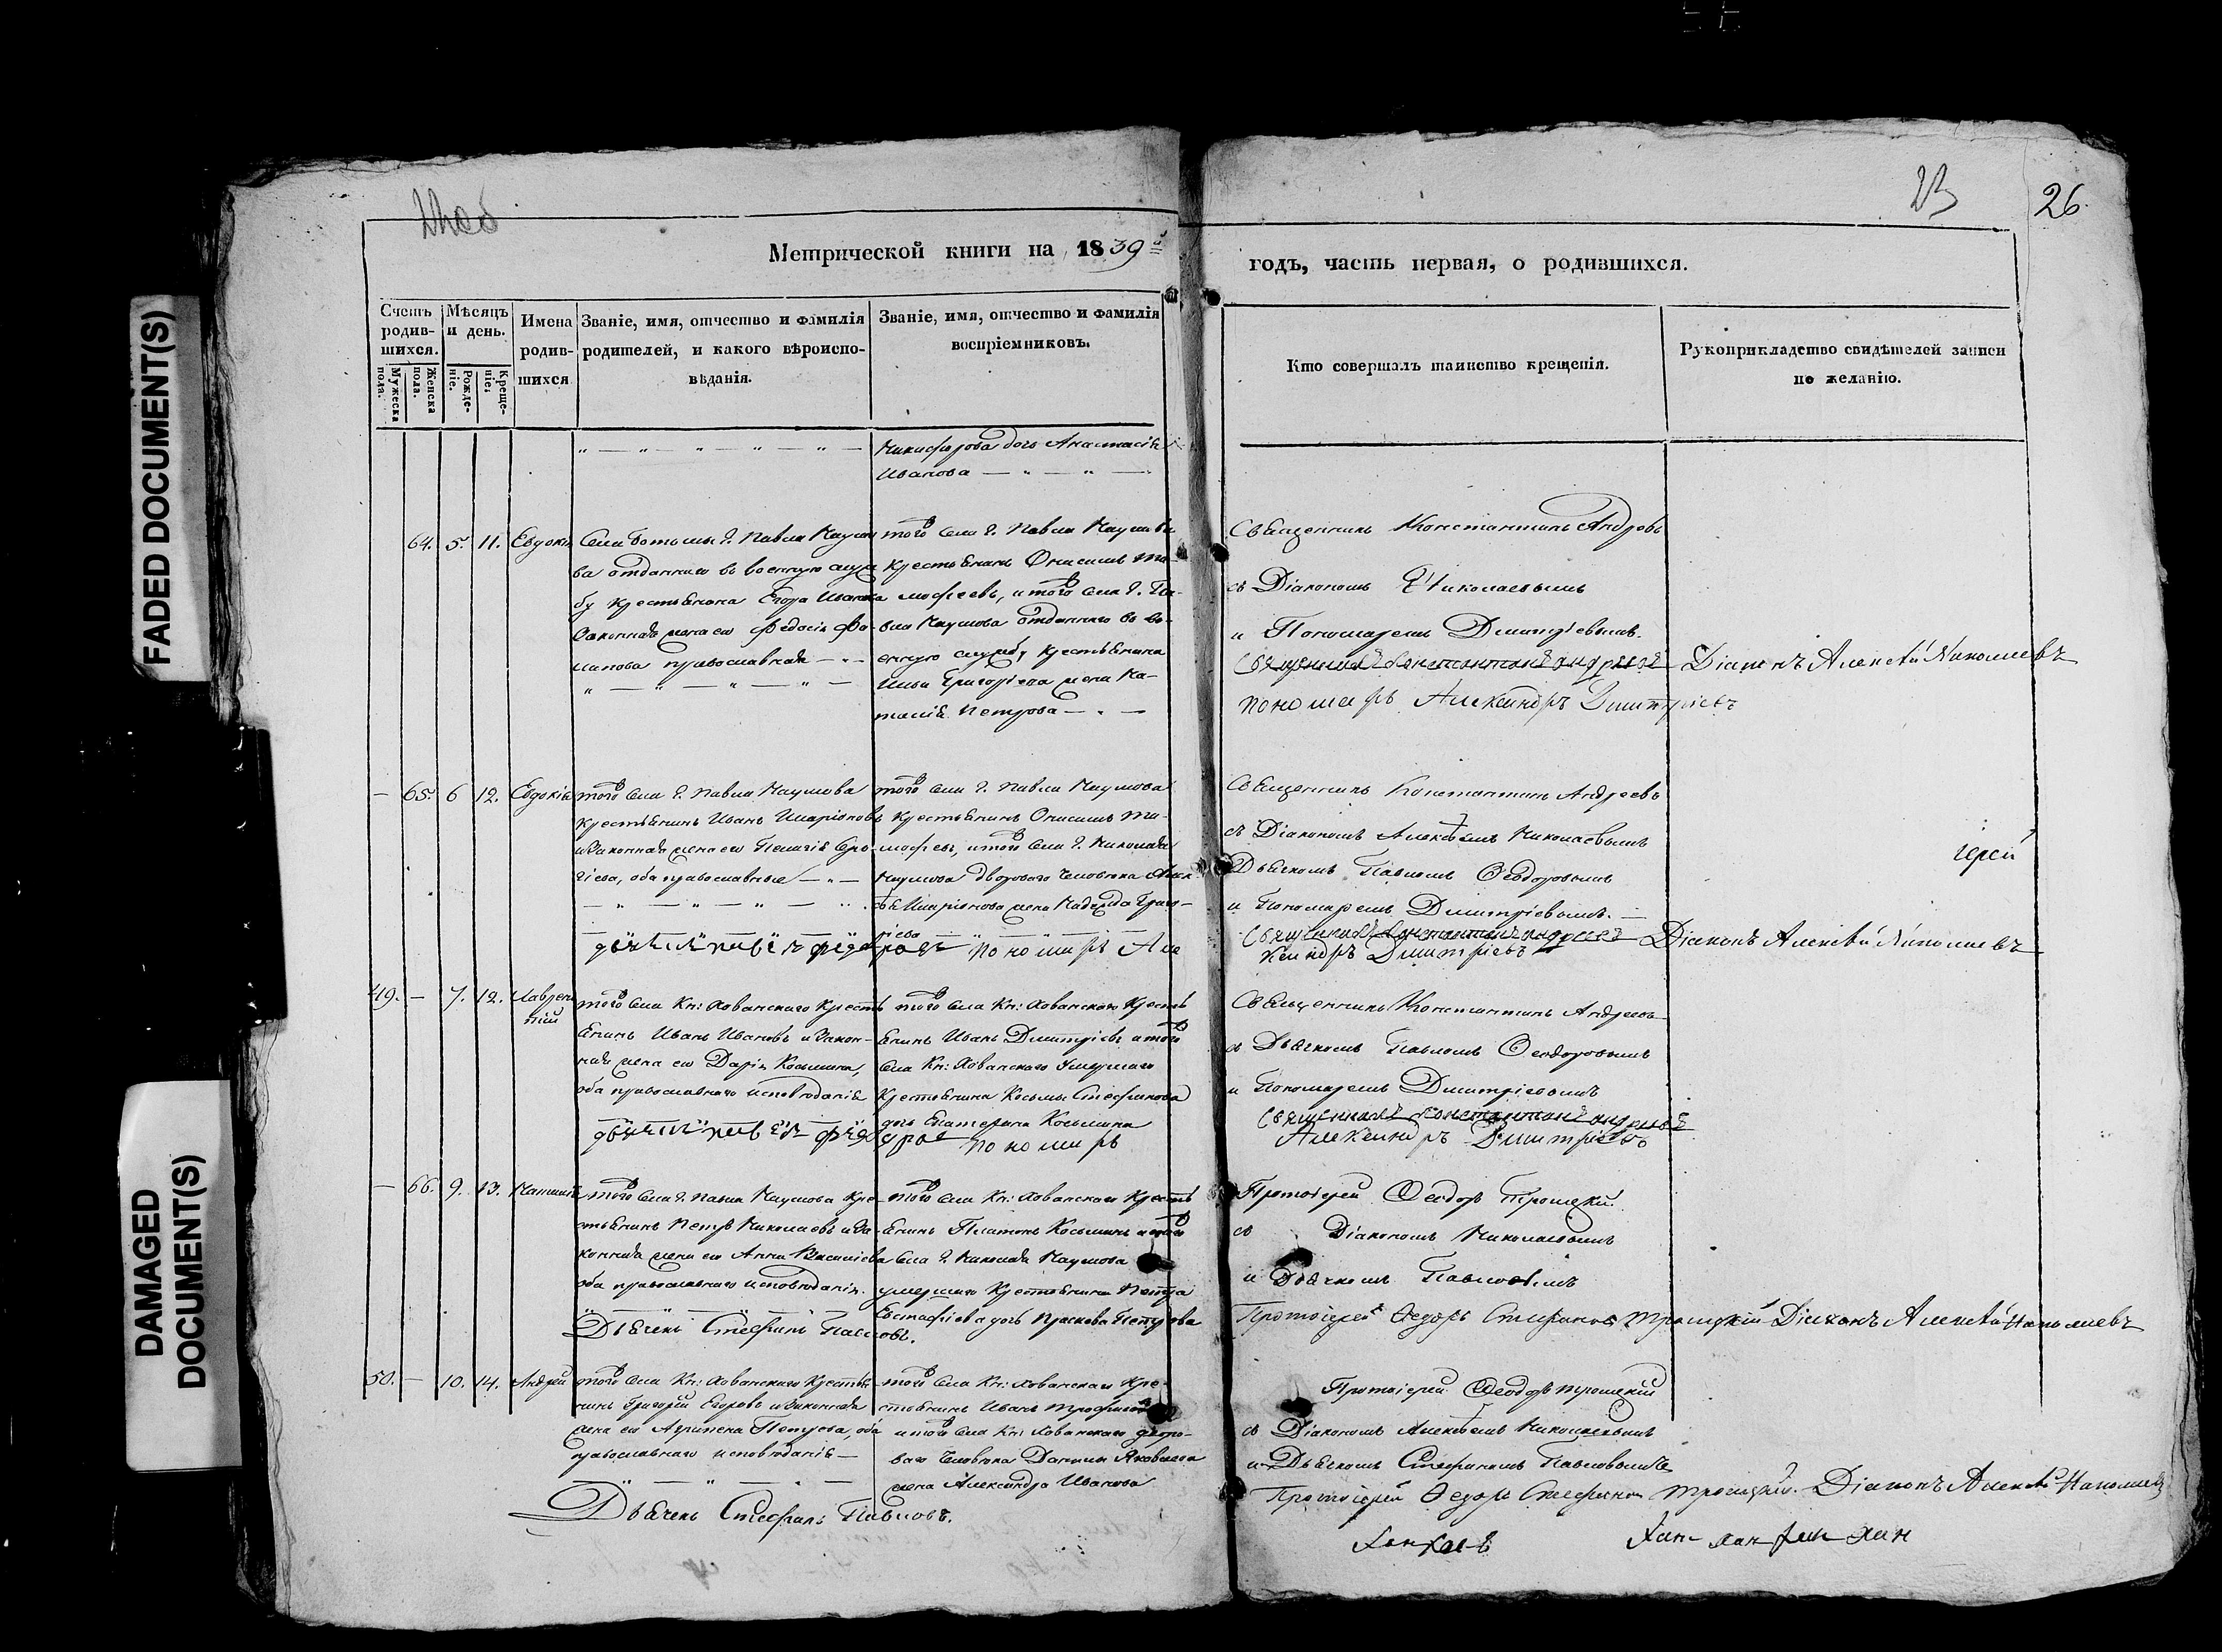 FADED DOCUMENT(S)
DAMAGED
DOCUMENT(S)
26.
Метрической книги на 1839й
годъ, часть первая, о родившихся.
Счетъ родив-шихся.
Мужеска пола.
Женска пола.
Мѣсяцъ и день.
Рожде-ніе.
Креще-ніе.
Имена родив-шихся
Званіе, имя, отчество и фамилія родителей, и какого вѣроиспо-вѣданія.
Званіе, имя, отчество и фамилія воспріемниковъ.
Кто совершалъ таинство крещенія.
Рукоприкладство свидѣтелей записи по желанію.
Никифорова дочь Анастасія
Иванова
64. 5. 11. Евдокія
Села г. Павла Наумо
ва отданнаго въ военную служ
бу крестьянина Егора Иванова
законная жена его Федосія Фи-
липова православная
того села г. Павла Наумова
крестьянинъ Онисимъ Ти-
мофеевъ, и того села г. Па-
вла Наумова отданнаго въ во-
енную службу крестьянина
Ильи Григорьева жена На-
талія Петрова
Священникъ Константинъ Андреевъ
съ Діакономъ Николаевымъ
и Пономаремъ Дмитріевымъ.
Священникъ Константинъ Андреевъ
Діаконъ Алексѣй Николаевъ
пономарь Александръ Дмитріевъ
65. 6 12. Евдокія
того села г. Павла Наумова
крестьянинъ Иванъ Иларіоновъ
и законная жена его Пелагія
гіева, оба православные
того села г. Павла Наумова
крестьянинъ Онисимъ Ти-
мофеевъ, и того села г. Николая
Наумова двороваго человека
Иларіонова жена Надежда Григо-
ріева
Священникъ Константинъ Андреевъ
съ Діакономъ Алексѣемъ Николаевымъ
Дьячкомъ Павломъ Ѳеодоровымъ
и Пономаремъ Дмитріевымъ.
Іерей
дьячекъ павелъ федоровъ пономарь Але
Священникъ Константинъ Андреевъ
ксандръ Дмитріевъ
Діаконъ Алексѣй Николаевъ
49. 7. 12. Лаврен
тій
того села Кн: Хованскаго кресть
янинъ Иванъ Ивановъ и закон-
ная жена его Дарія Косьмина,
оба православнаго исповѣданія
того села Кн: Хованскаго кресть
янинъ Иванъ Дмитріевъ и того
села Кн: Хованскаго умершаго
крестьянина Косьмы Стефанова
дочь Екатерина Косьмина
Священникъ Константинъ Андреевъ
съ Дьячкомъ Павломъ Ѳеодоровымъ
и Пономаремъ Дмитріевымъ
Священникъ Константинъ Андреевъ
дьячекъ павелъ федоровъ пономарь
Александръ Дмитріевъ
66. 9. 13.
того села г. Павла Наумова кре-
стьянинъ Петръ Николаевъ и за-
конная жена его Анна Василіева
оба православнаго исповѣданія.
того села Кн: Хованскаго кресть
янинъ Платонъ Косьминъ и того
села г. Николая Наумова
умершаго крестьянина Петра
Евстафіева дочь Прасковья Петрова
Протоіерей Ѳеодоръ Троицкій
съ Діакономъ Николаевымъ
и Дьячкомъ Павловымъ
Дьячекъ Стефанъ Павловъ.
Протоіерей Ѳедоръ Стефановъ Троицкій Діаконъ Алексѣй Николаевъ
50. 10. 14. Андрей
того села Кн: Хованскаго крестья-
нинъ Григорій Егоровъ и законная
жена его Агрипена Петрова, оба
православнаго исповѣданія
того села Кн: Хованскаго кре-
стьянинъ Иванъ Трофимовъ
и того села Кн: Хованскаго дворо-
ваго человека Данилы Яковлева
жена Александра Иванова
Протоіерей Ѳеодоръ Троицкій
съ Діакономъ Алексѣемъ Николаевымъ
и Дьячкомъ Стефаномъ Павловымъ
Дьячекъ Стефанъ Павловъ.
Протоіерей Ѳедоръ Стефановъ Троицкій. Діаконъ Алексѣй Николаевъ